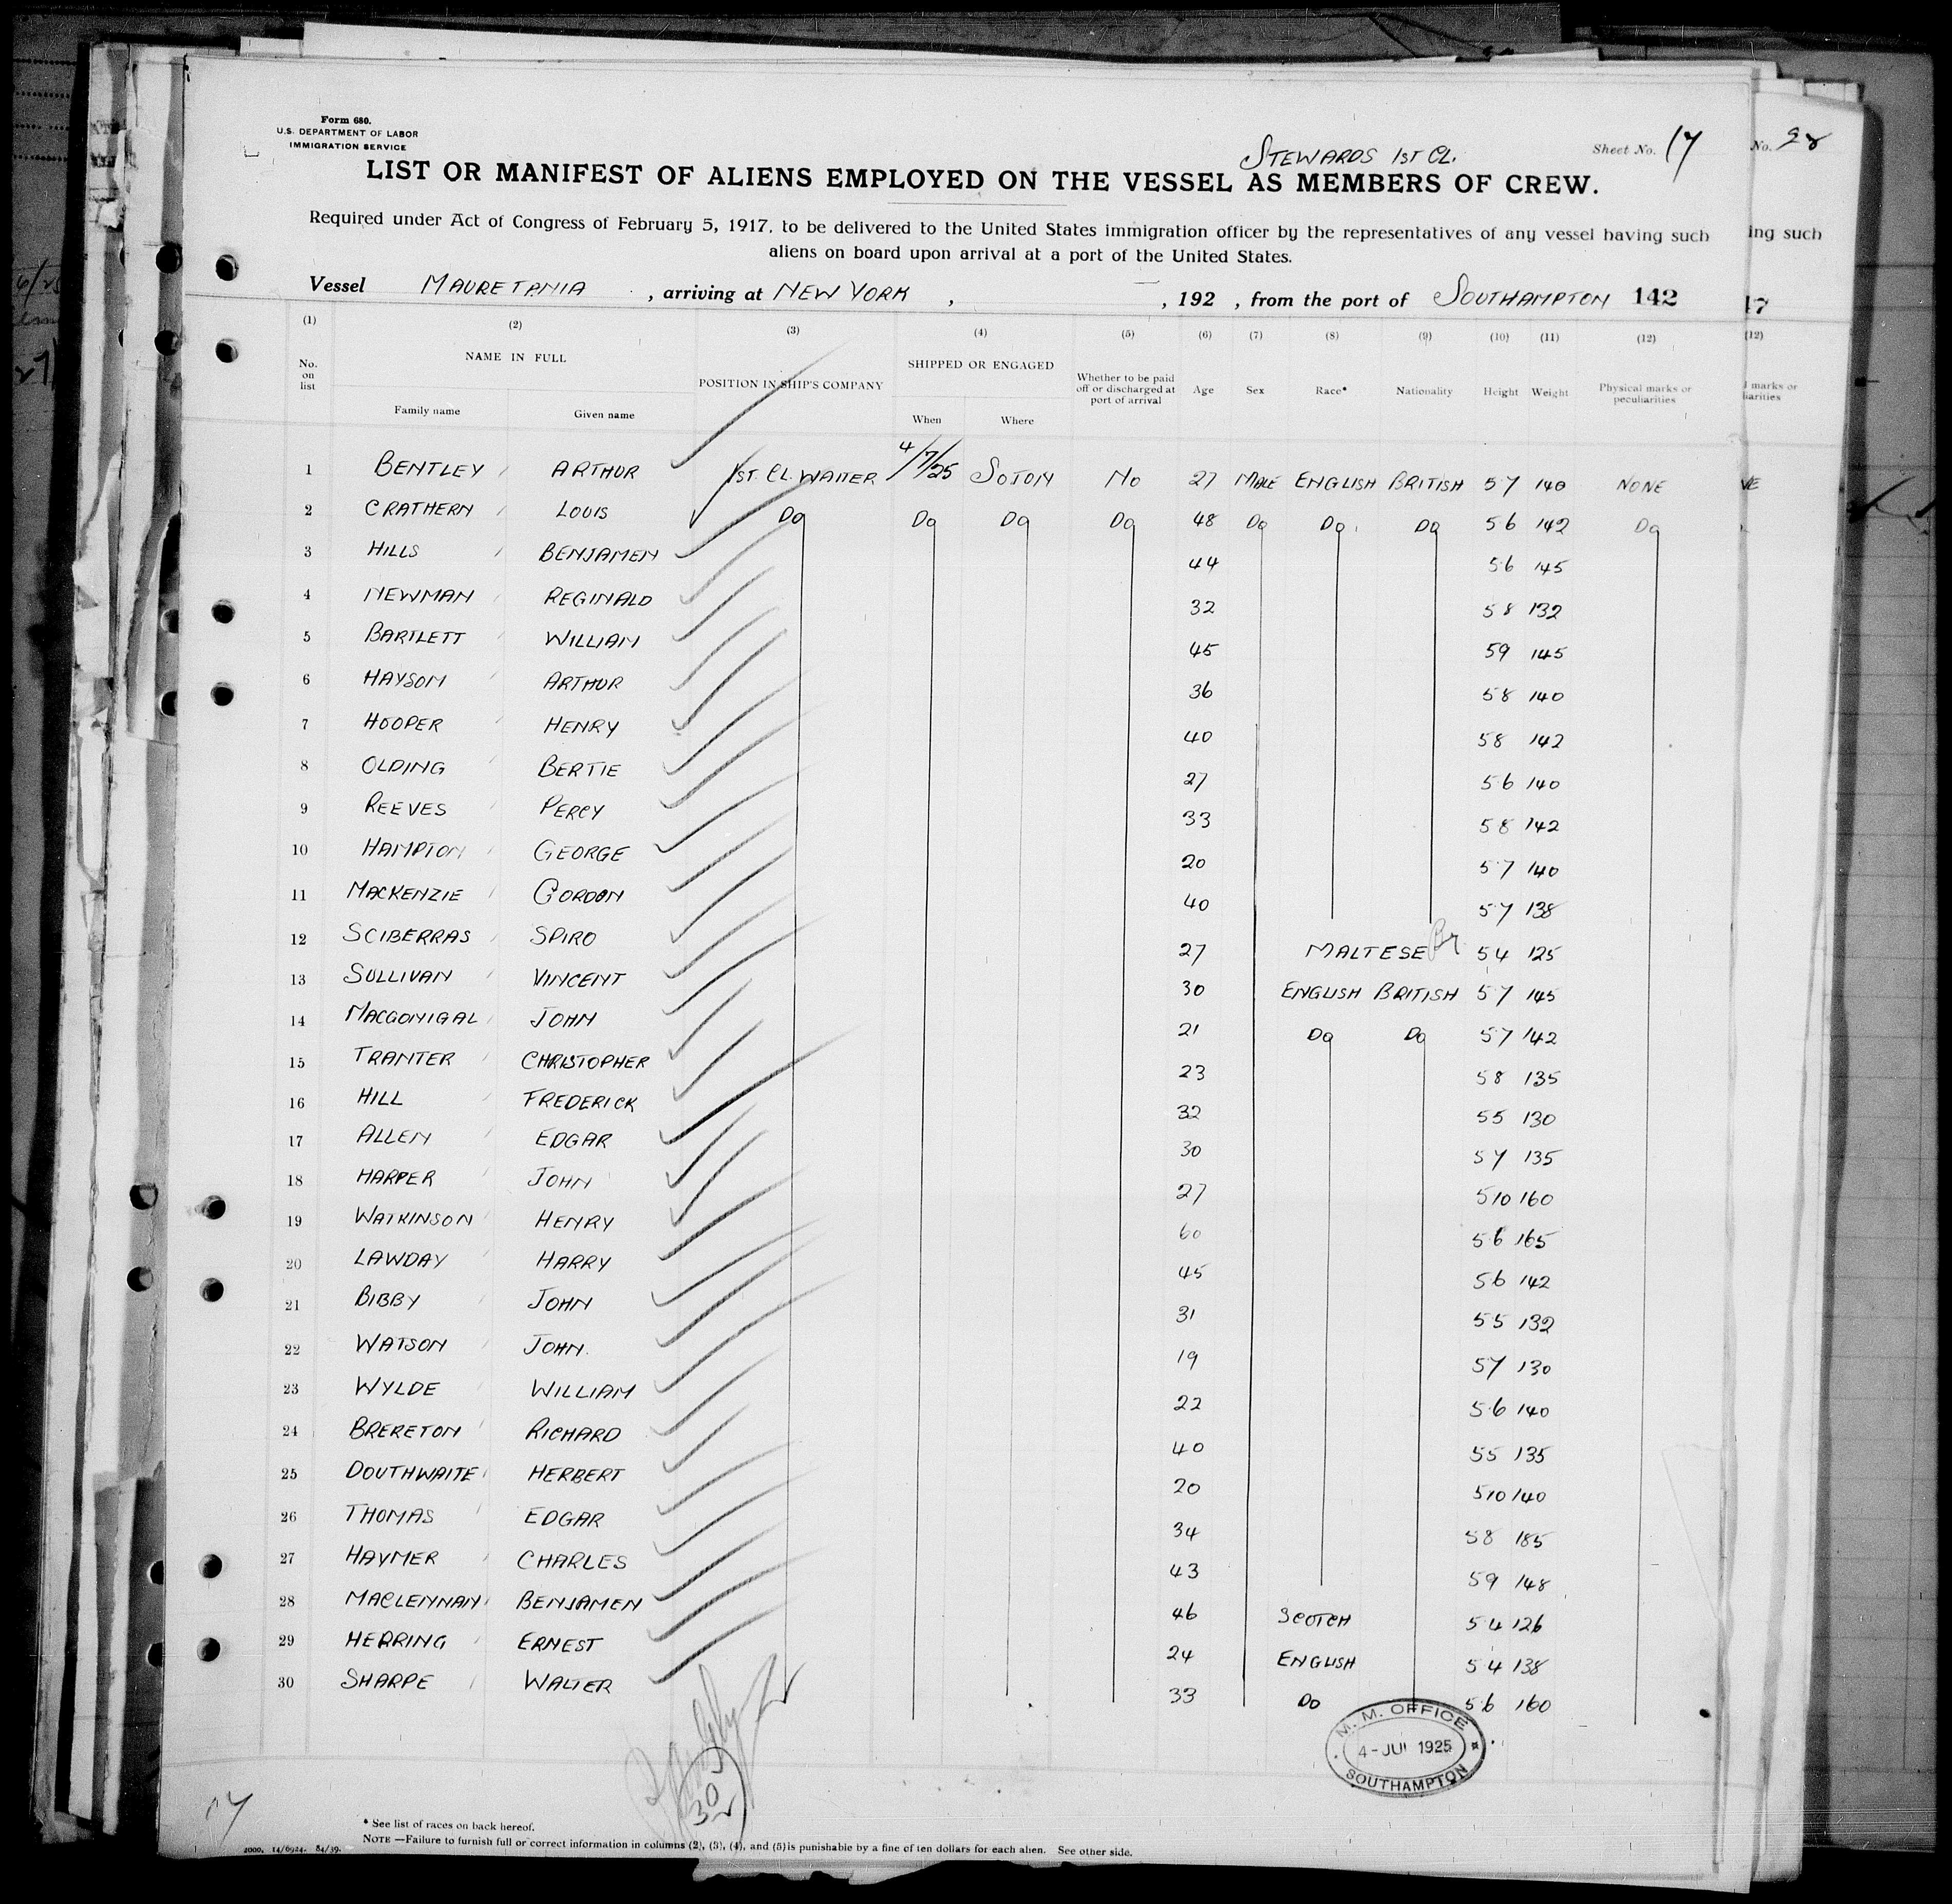 Form 680.
U.S. DEPARTMENT OF LABOR
IMMIGRATION SERVICE
STEWARDS 1ST CL.
Sheet No. 17
No. 28
LIST OR MANIFEST OF ALIENS EMPLOYED ON THE VESSEL AS MEMBERS OF CREW.
Required under Act of Congress of February 5, 1917, to be delivered to the United States immigration officer by the representatives of any vessel having such
ing such
aliens on board upon arrival at a port of the United States.
Vessel MAURETANIA , arriving at NEW YORK , , 192 , from the port of SOUTHAMPTON 142
17
(1) (2) (3) (4) (5) (6) (7) (8) (9) (10) (11) (12) (12)
No. on list NAME IN FULL Family name Given name POSITION IN SHIP'S COMPANY SHIPPED OR ENGAGED When Where Whether to be paid off or discharged at port of arrival Age Sex Race* Nationality Height Weight Physical marks or peculiarities
marks or
iarities
1 BENTLEY ARTHUR 1ST. CL. WAITER 4/7/25 SOTON NO 27 MALE ENGLISH BRITISH 5 7 140 NONE
2 CRATHERN LOUIS DO DO DO DO 48 DO DO DO 5 6 142 DO
3 HILLS BENJAMEN 44 5 6 145
4 NEWMAN REGINALD 32 5 8 132
5 BARTLETT WILLIAM 45 5 9 145
6 HAYSOM ARTHUR 36 5 8 140
7 HOOPER HENRY 40 5 8 142
8 OLDING BERTIE 27 5 6 140
9 REEVES PERCY 33 5 8 142
10 HAMPTON GEORGE 20 5 7 140
11 MACKENZIE GORDON 40 5 7 138
12 SCIBERRAS SPIRO 27 MALTESE Br 5 4 125
13 SULLIVAN VINCENT 30 ENGLISH BRITISH 5 7 145
14 MACGONIGAL JOHN 21 DO DO 5 7 142
15 TRANTER CHRISTOPHER 23 5 8 135
16 HILL FREDERICK 32 5 5 130
17 ALLEN EDGAR 30 5 7 135
18 HARPER JOHN 27 5 10 160
19 WATKINSON HENRY 60 5 6 165
20 LAWDAY HARRY 45 5 6 142
21 BIBBY JOHN 31 5 5 132
22 WATSON JOHN. 19 5 7 130
23 WYLDE WILLIAM 22 5 6 140
24 BRERETON RICHARD 40 5 5 135
25 DOUTHWAITE HERBERT 20 5 10 140
26 THOMAS EDGAR 34 5 8 185
27 HAYMER CHARLES 43 5 9 148
28 MACLENNAN BENJAMEN 46 SCOTCH 5 4 126
29 HERRING ERNEST 24 ENGLISH 5 4 138
30 SHARPE WALTER 33 DO 5 6 160
M. M. OFFICE
4-JUL 1925
SOUTHAMPTON
30
17
* See list of races on back hereof.
NOTE —Failure to furnish full or correct information in columns (2), (3), (4), and (5) is punishable by a fine of ten dollars for each alien. See other side.
2000. 14/6924. 84/39.